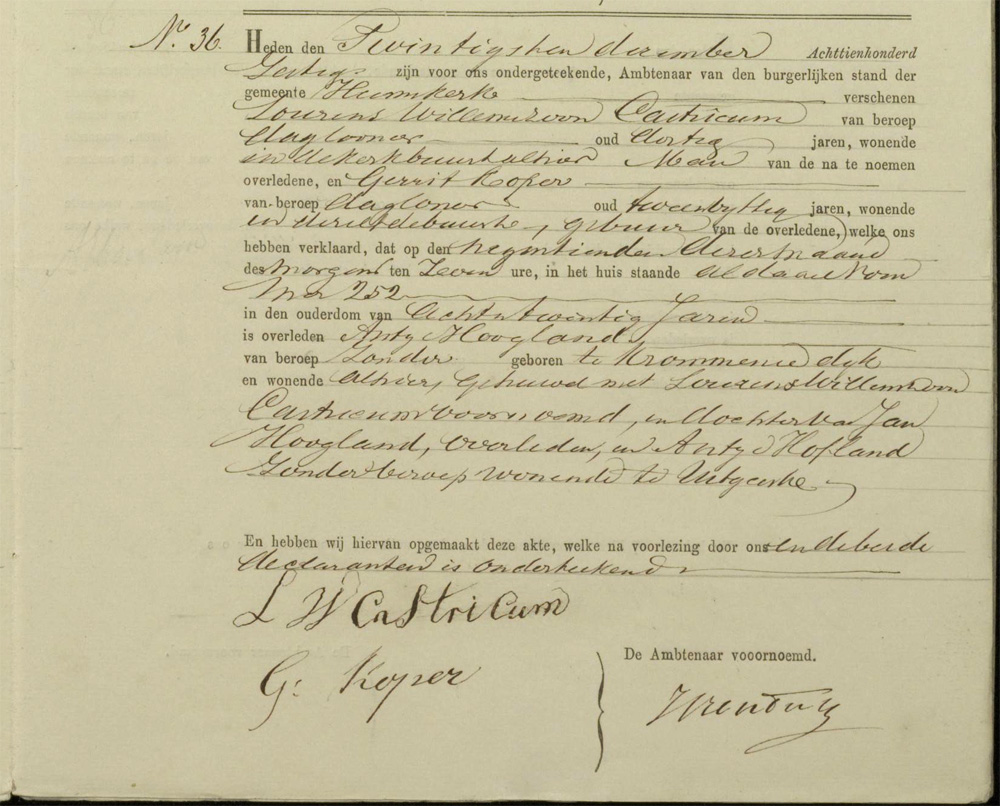 No. 36.
Heden den Twintigsten december Achttienhonderd
Zestig zijn voor ons ondergeteekende, Ambtenaar van den burgerlijken stand der
gemeente Heemskerk verschenen
Lourens Willemszoon Castricum van beroep
daglooner oud dertig jaren, wonende
in de kerkbuurt alhier Man van de na te noemen
overledene, en Gerrit Koper
van beroep daglooner oud twee en vyftig jaren, wonende
in de buurt, gebuur van de overledene, welke ons
hebben verklaard, dat op den negentienden dezer maand
des morgens ten Zeven ure, in het huis staande aldaar Nom
mer 252
in den ouderdom van acht en twintig Jaren
is overleden Antje Hoogland,
van beroep Zonder geboren te Krommeniedyk
en wonende alhier, gehuwd met Lourens Willemszoon
Castricum voornoemd, en dochter van Jan
Hoogland, overleden, en Antje Hofland
Zonder beroep wonende te Uitgeest
En hebben wij hiervan opgemaakt deze akte, welke na voorlezing door ons en de beide
declaranten is onderteekend
L W CaStricum
G: Koper
De Ambtenaar vooornoemd.